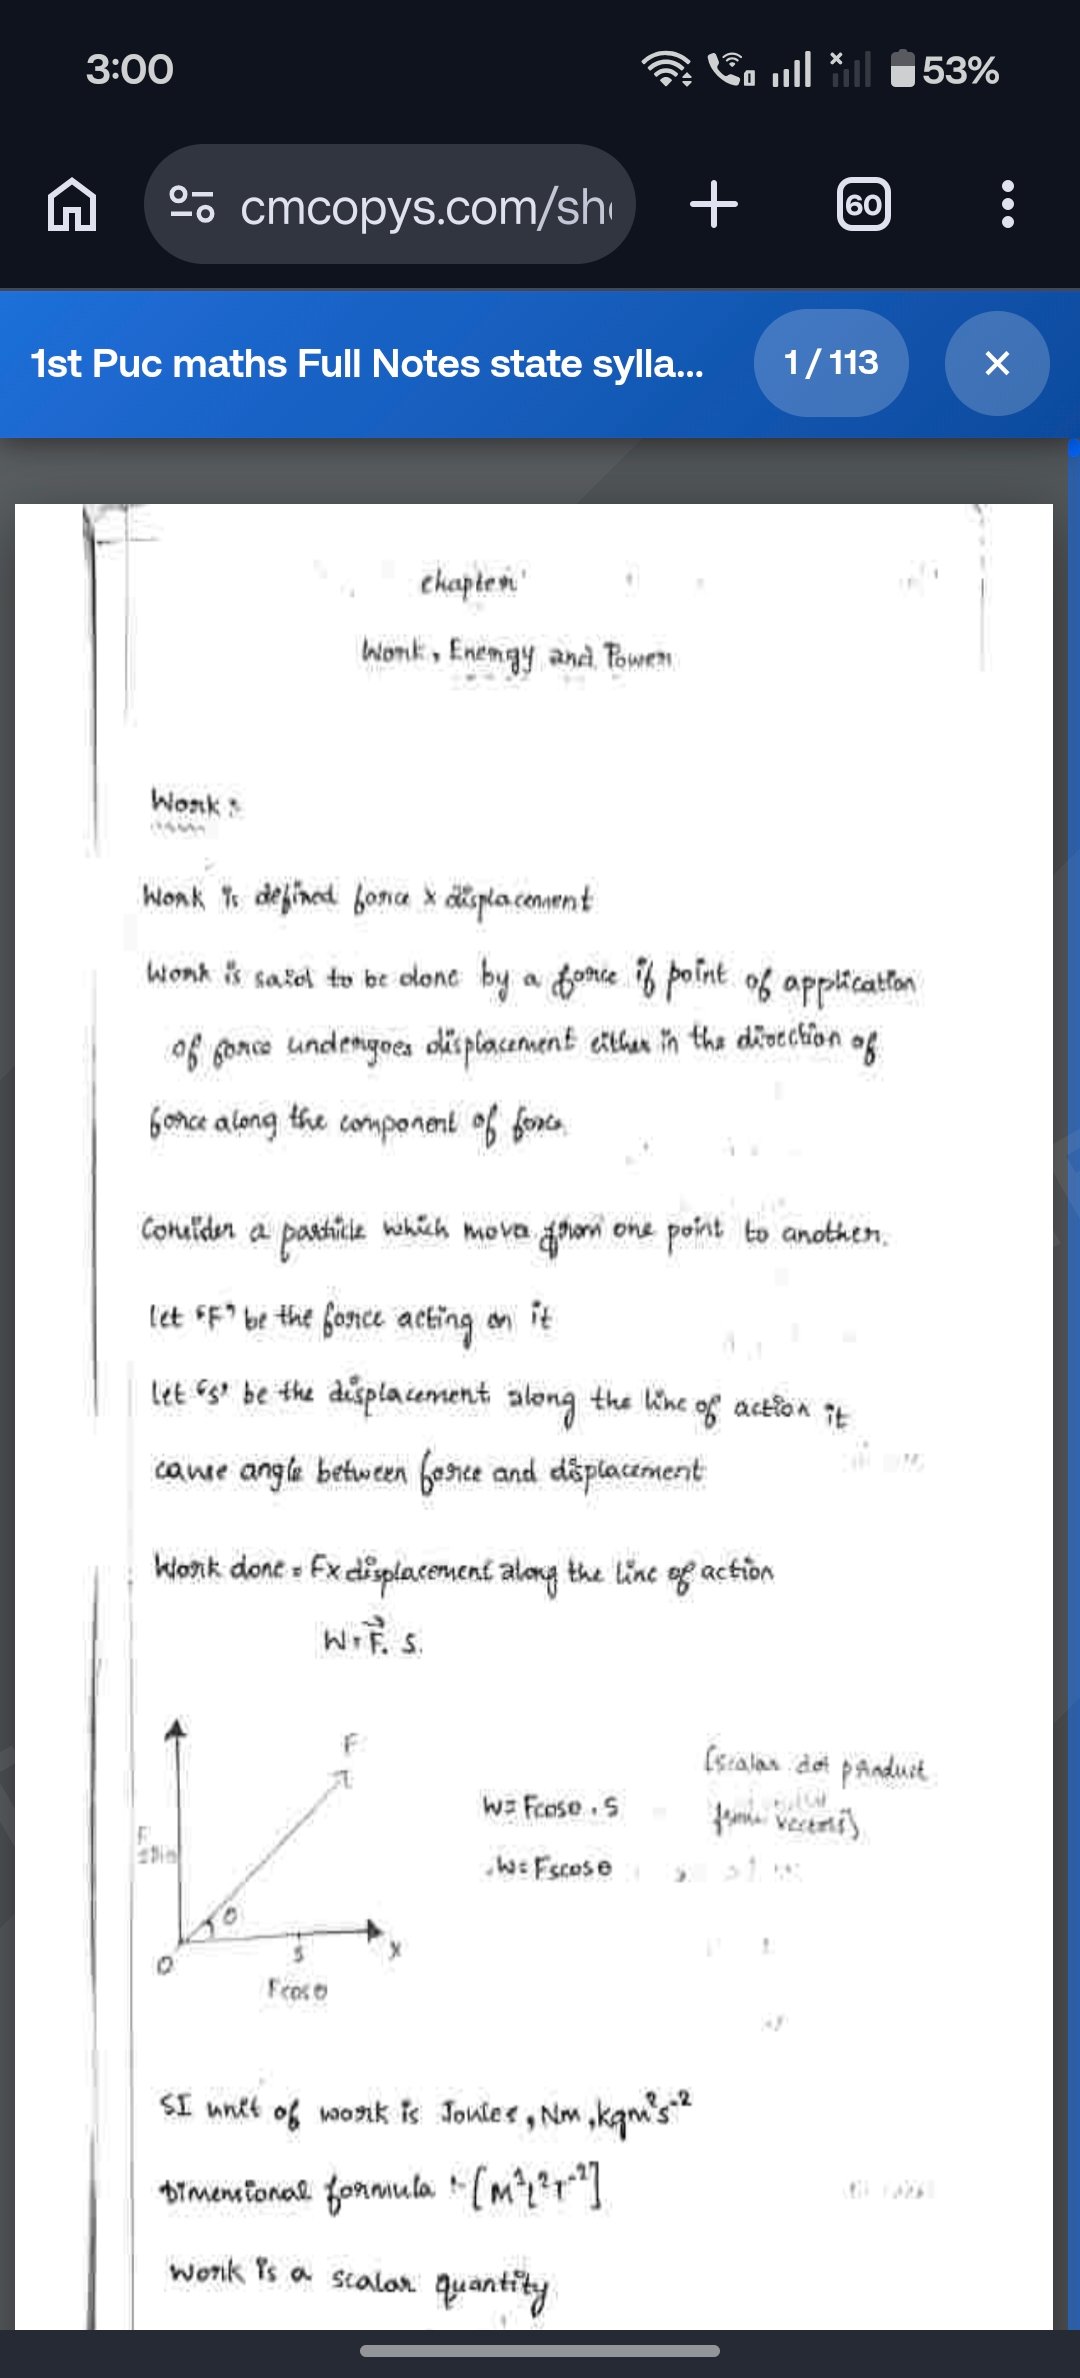 3:00
53%
cmcopys.com/sh
60
1st Puc maths Full Notes state sylla...
1 / 113
chapter
Work, Energy and Power
Work :
Work is defined force x displacement
Work is said to be done by a force if point of application
of force undergoes displacement either in the direction of
force along the component of force
Consider a particle which move from one point to another.
let "F" be the force acting on it
let 's' be the displacement along the line of action it
cause angle between force and displacement
Work done = Fx displacement along the line of action
W = F⃗. S.
F
[scalar dot product
W= Fcosθ . S
vectors]
F
W= Fscosθ
θ
O
S
X
Fcosθ
SI unit of work is Joules, Nm, kgm²s⁻²
Dimensional formula :- [M¹L²T⁻²]
Work is a scalar quantity